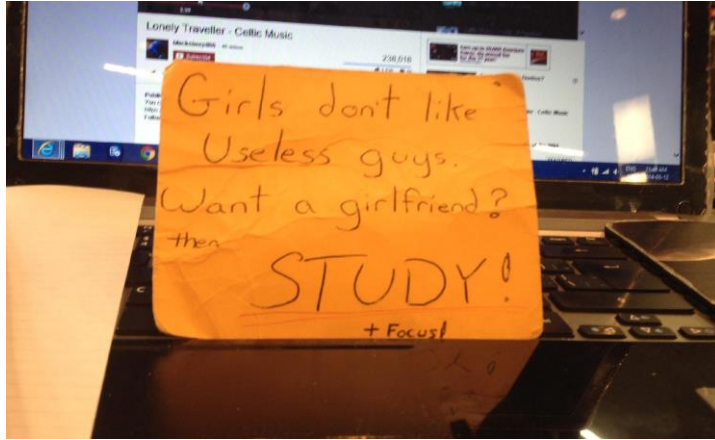 Lonely Traveller - Celtic Music
236,016
Girls don't like
Useless guys.
Want a girlfriend?
then
STUDY!
+ Focus!